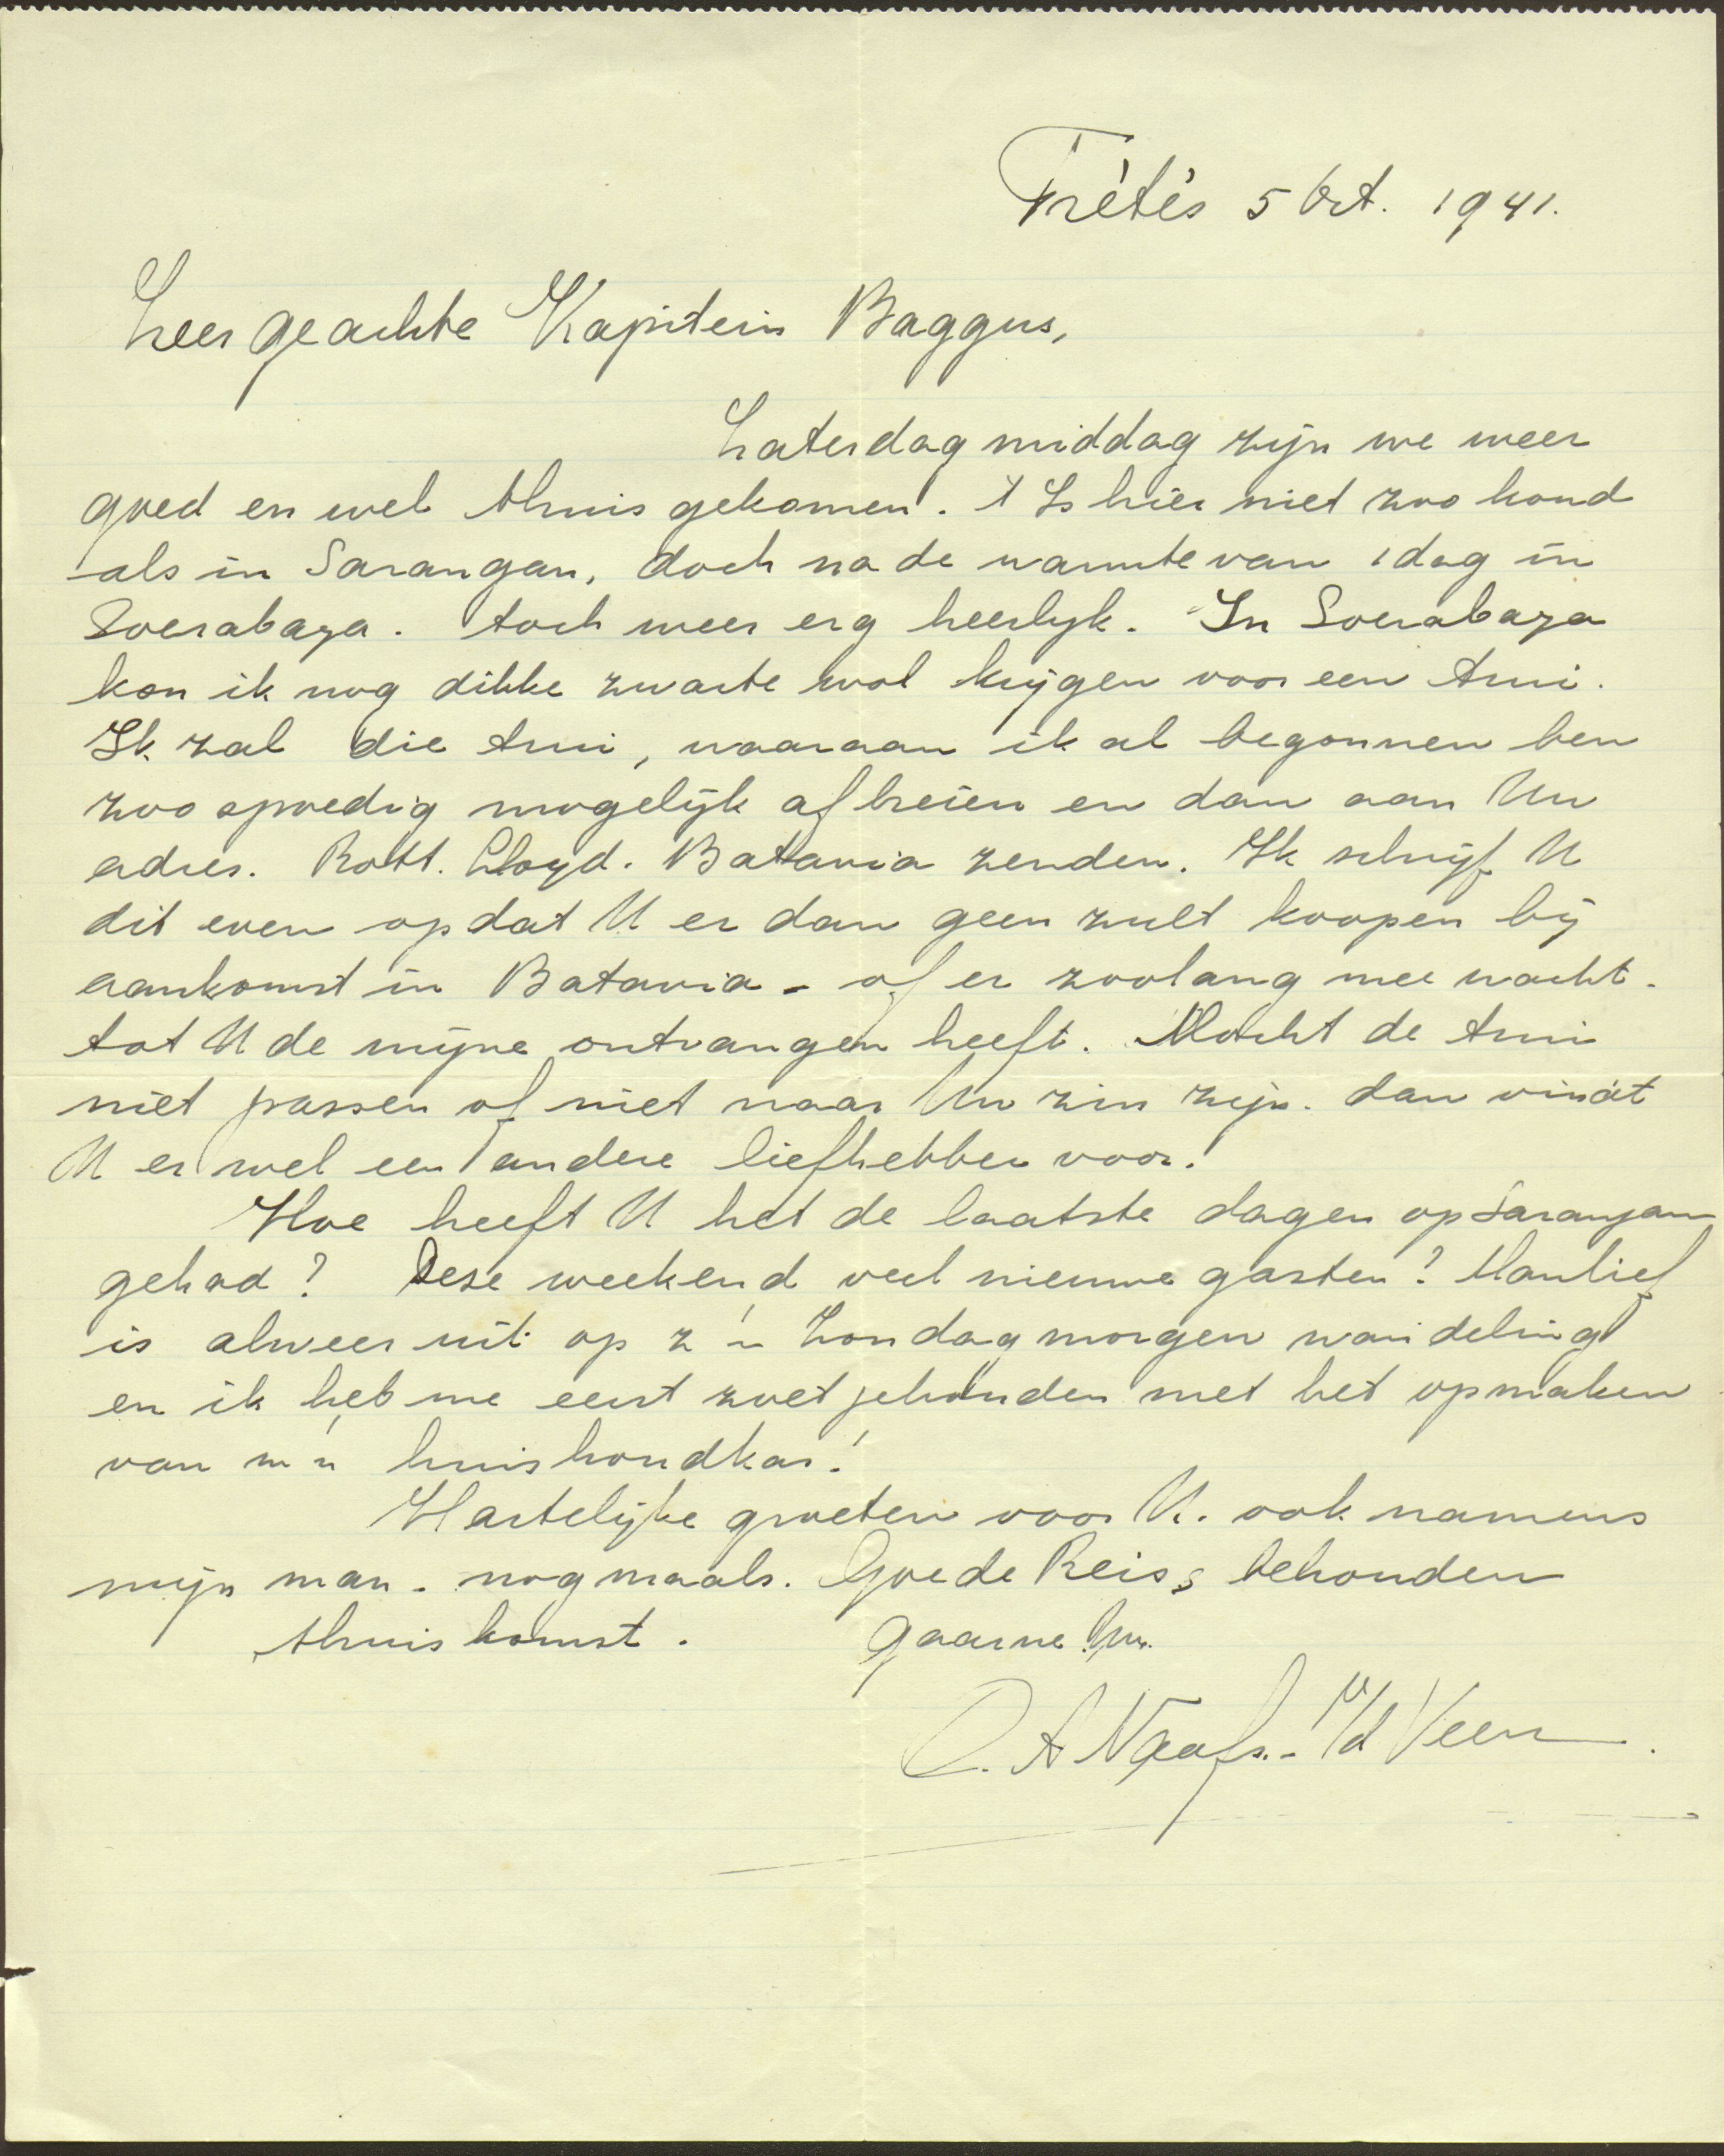 Trètès 5 Oct. 1941.
Zeer geachte Kapitein Baggus,
Zaterdag middag zijn we weer
goed en wel thuis gekomen. 't Is hier niet zoo koud
als in Sarangan, doch na de warmte van 1 dag in
Soerabaya. toch weer erg heerlyk. In Soerabaya
kon ik nog dikke zwarte wol krijgen voor een trui.
Ik zal die trui, waaraan ik al begonnen ben
zoo spoedig mogelijk af breien en dan aan Uw
adres. Rott. Lloyd. Batavia zenden. Ik schrijf U
dit even opdat U er dan geen zult koopen bij
aankomst in Batavia - of er zoolang mee wacht.
tot U de mijne ontvangen heeft. Mocht de trui
niet passen of niet naar Uw zin zijn. dan vindt
U er wel een andere liefhebber voor!
Hoe heeft U het de laatste dagen op Sarangan
gehad? Deze weekend veel nieuwe gasten? Manlief
is alweer uit op z'n Zondagmorgen wandeling
en ik heb me eerst zoet gehouden met het opmaken
van m'n huishoudkas!
Hartelijke groeten voor U. ook namens
mijn man - nogmaals. Goede Reis, behouden
thuis komst. Gaarne Uw.
C. A Naafs. - v/d Veen.